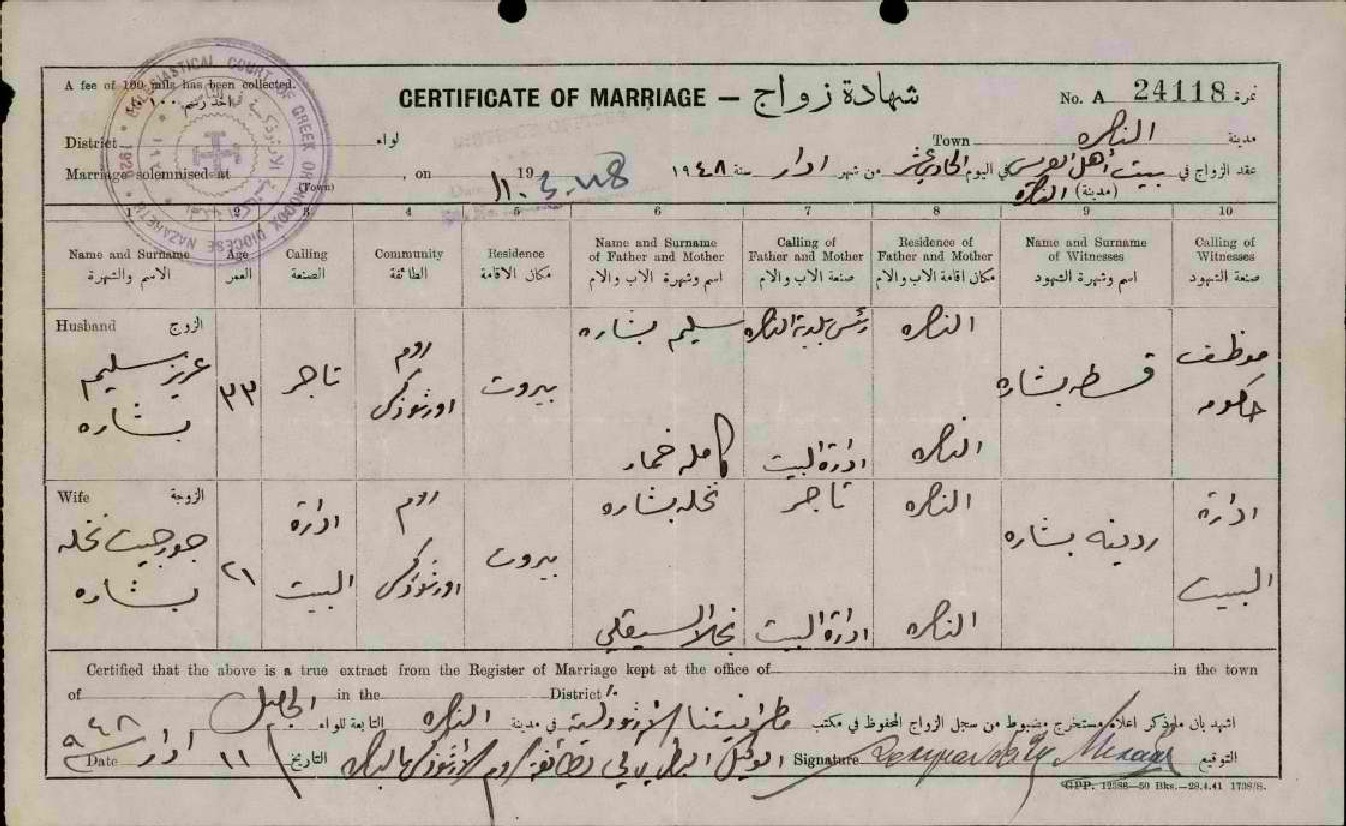 A fee of 100 mils has been collected.
CERTIFICATE OF MARRIAGE — شهادة زواج
No. A 24118 نمرة
ECCLESIASTICAL COURT OF GREEK ORTHODOX DIOCESE NAZARETH
District لواء
Town الناصره مدينة
Marriage solemnised at (Town), on 19
11.3.48
عقد الزواج في بيت أهل العريس في اليوم الحادي عشر من شهر ادار سنة ١٩٤٨
(مدينة) الناصره
1 2 3 4 5 6 7 8 9 10
Name and Surname Age Calling Community Residence Name and Surname of Father and Mother Calling of Father and Mother Residence of Father and Mother Name and Surname of Witnesses Calling of Witnesses
الاسم والشهرة العمر الصنعة الطائفة مكان الاقامة اسم وشهرة الاب والام صنعة الاب والام مكان اقامة الاب والام اسم وشهرة الشهود صنعة الشهود
Husband الزوج
عزيز سليم بشاره
٣٣
تاجر
روم اورثوذكس
بيروت
سليم بشاره
كامله خمار
رئيس بلدية الناصره
ادارة البيت
الناصره
الناصره
بشاره
موظف حكومه
Wife الزوجة
جورجيت نخله بشاره
٢١
ادارة البيت
روم اورثوذكس
بيروت
نخله بشاره
نجلا السيقلي
تاجر
ادارة البيت
الناصره
الناصره
بشاره
ادارة البيت
Certified that the above is a true extract from the Register of Marriage kept at the office of in the town
of in the District
اشهد بان ما ذكر اعلاه مستخرج مضبوط من سجل الزواج المحفوظ في مكتب مطرانيتنا الارثوذكسية في مدينة الناصره التابعة للواء الجليل
Date ١١ ادار ٩٤٨ التاريخ
Signature التوقيع
GPP. 12588—50 Bks.—28.4.41 1738/S.